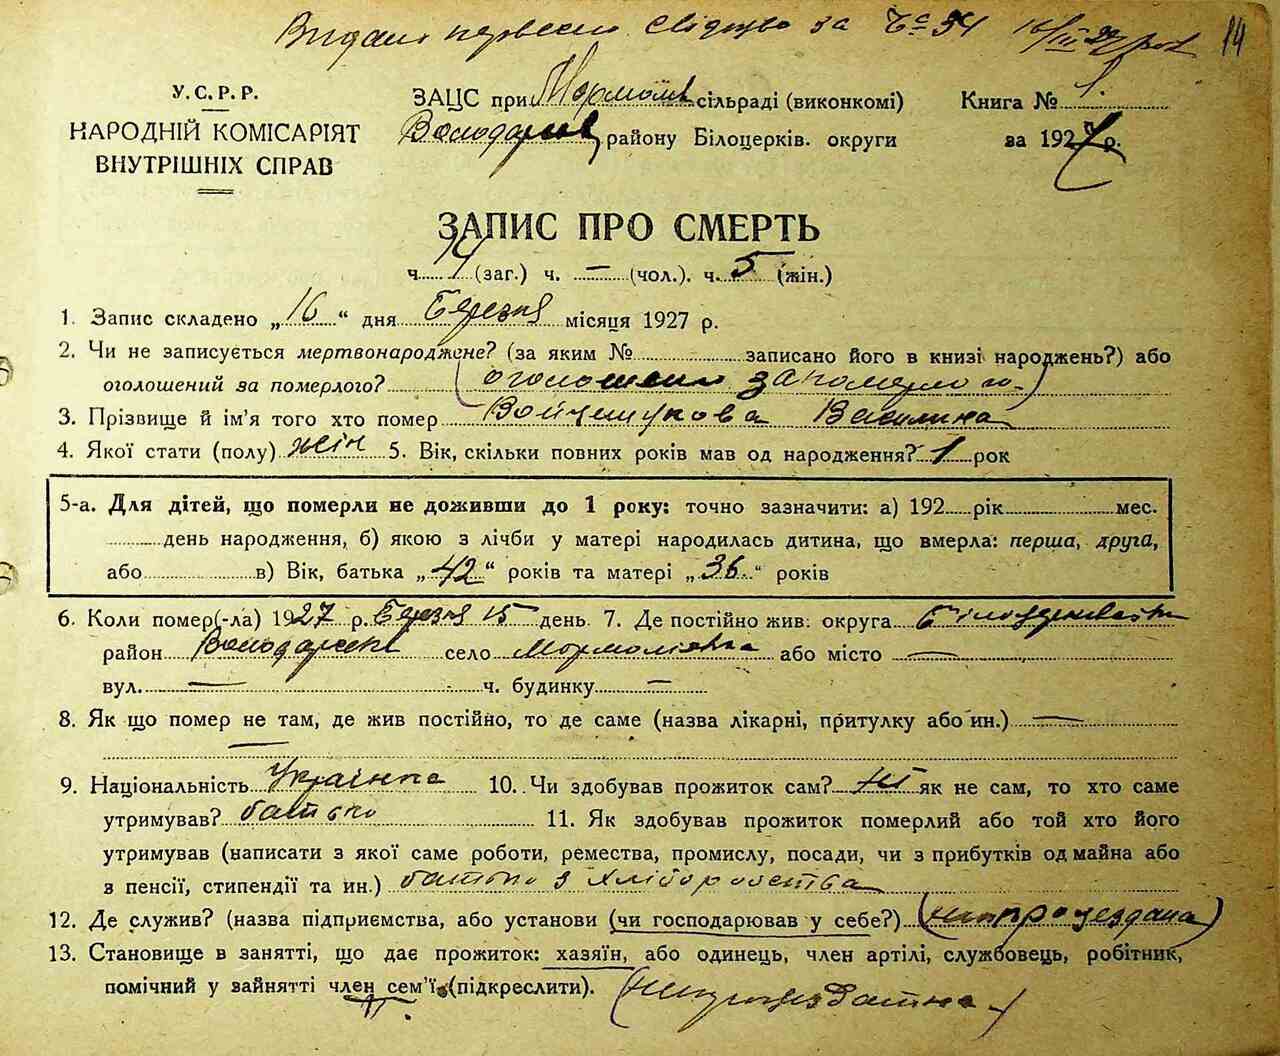 Видано первесне свідцтво за Ч 54 16/III 27 рок
14
У.С.Р.Р.
НАРОДНІЙ КОМІСАРІЯТ
ВНУТРІШНІХ СПРАВ
ЗАЦС при Мормолів сільраді (виконкомі)
Володарськ району Білоцерків. округи
Книга № 1.
за 1927 р.
ЗАПИС ПРО СМЕРТЬ
ч. 14 (заг.) ч. — (чол.). ч. 5 (жін.)
1. Запис складено „16“ дня Березня місяця 1927 р.
2. Чи не записується мертвонароджене? (за яким № записано його в книзі народжень?) або
оголошений за померлого? (оголошено за померлого.)
3. Прізвище й ім'я того хто помер Войцешукова Василина
4. Якої стати (полу) жін 5. Вік, скільки повних років мав од народження? 1 рок
5-а. Для дітей, що померли не доживши до 1 року: точно зазначити: а) 192 рік мес.
день народження, б) якою з лічби у матері народилась дитина, що вмерла: перша, друга,
або в) Вік, батька „42“ років та матері „36“ років
6. Коли помер(-ла) 1927 р. Березня 15 день 7. Де постійно жив: округа Білоцерківська
район Володарськ село Мормоліївка або місто —
вул. — ч. будинку —
8. Як що помер не там, де жив постійно, то де саме (назва лікарні, притулку або ин.) —
—
9. Національність Українка 10. Чи здобував прожиток сам? Ні як не сам, то хто саме
утримував? батько 11. Як здобував прожиток померлий або той хто його
утримував (написати з якої саме роботи, ремества, промислу, посади, чи з прибутків од майна або
з пенсії, стипендії та ин.) батько з хліборобства
12. Де служив? (назва підприємства, або установи (чи господарював у себе?)
13. Становище в занятті, що дає прожиток: хазяїн, або одинець, член артілі, службовець, робітник,
помічний у зайнятті член сем'ї (підкреслити).